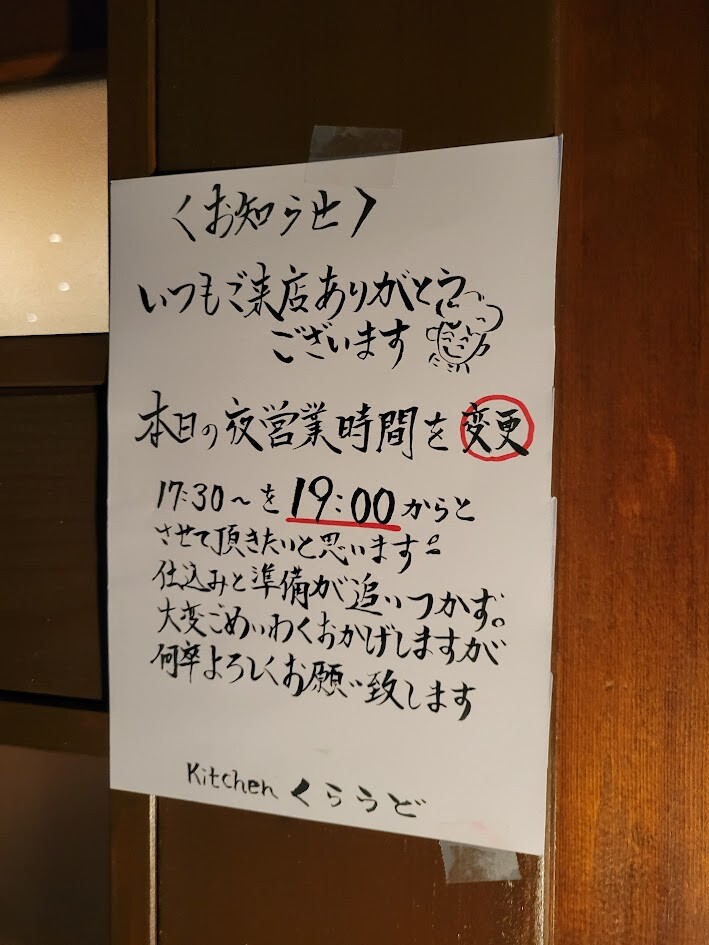 〈お知らせ〉
いつもご来店ありがとう
ございます
本日の夜営業時間を変更
17:30〜を19:00からと
させて頂きたいと思います
仕込みと準備が追いつかず。
大変ごめいわくおかけしますが
何卒よろしくお願い致します
Kitchen くらうど